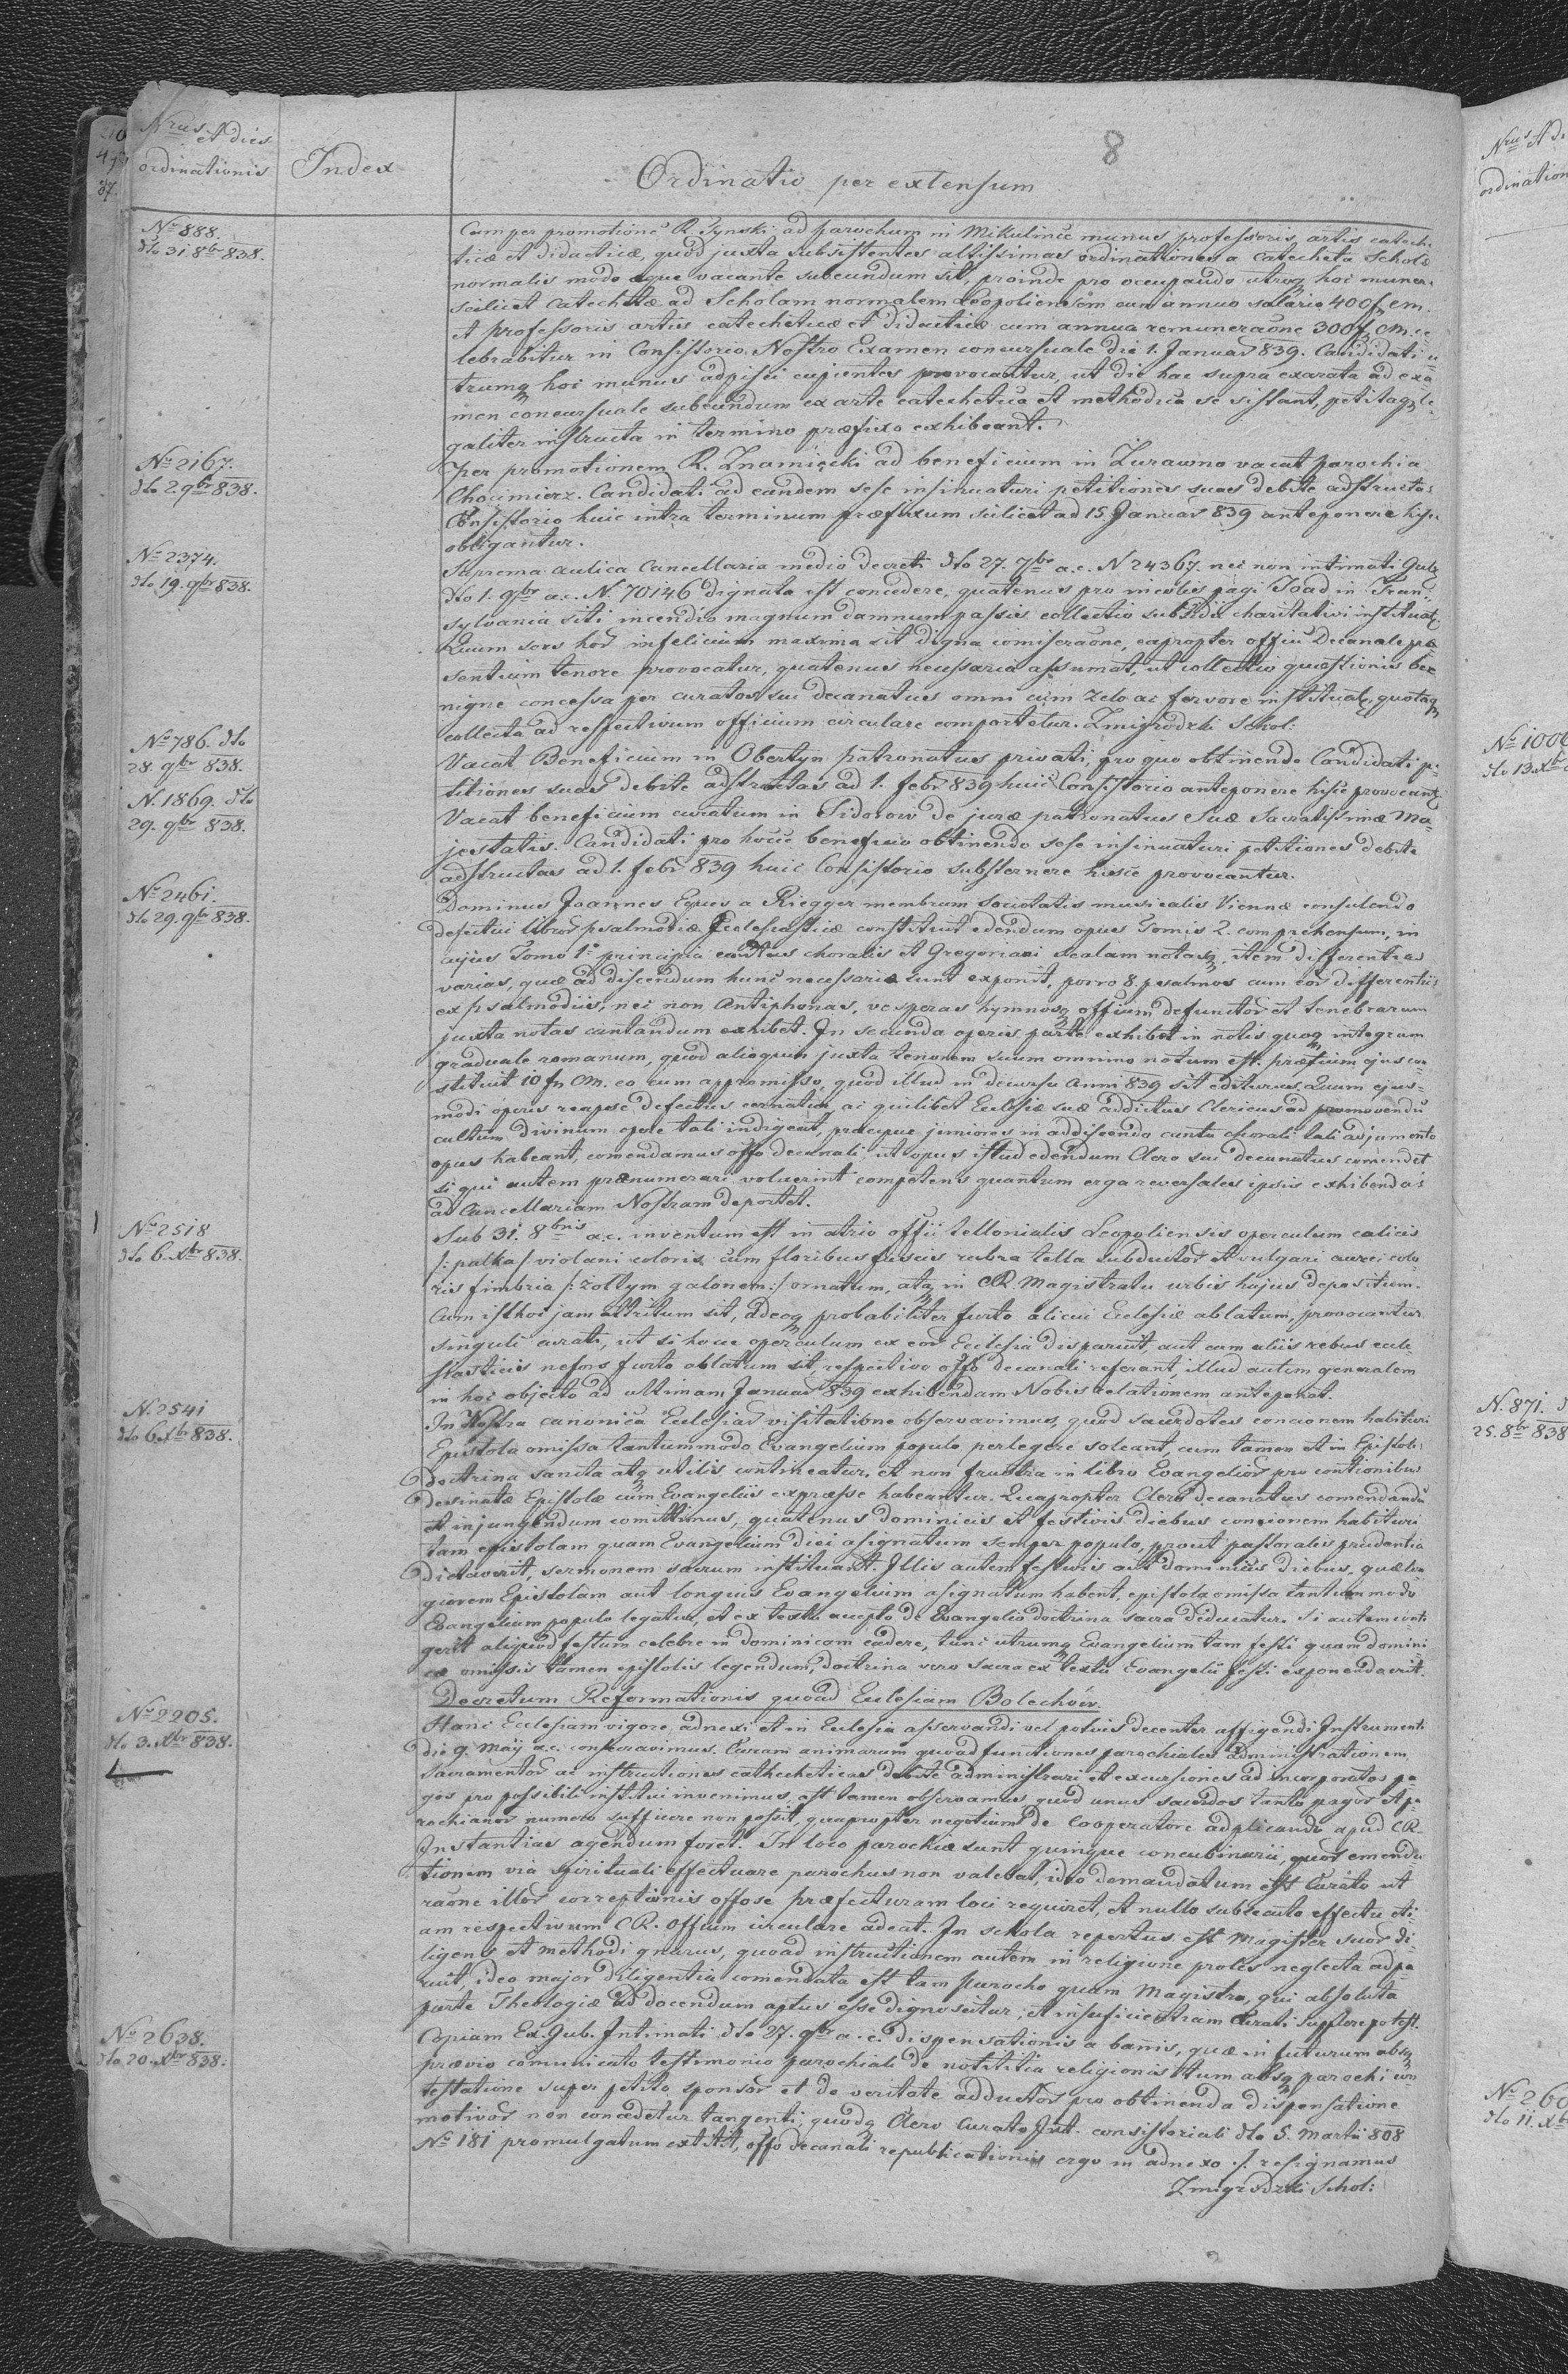 8
Nrus et dies
ordinationis
Index
Ordinatio per extensum
No 888.
dto 31. 8br 838.
Cum per promotionē R. Tynski ad parochum in Mikulińce munus professoris artis cateche
ticæ et didacticæ, quod juxta subsistentes altissimas ordinationes a catecheta Scholæ
normalis modo æque vacante subeundum sit, proinde pro occupando utroq hoc munere
scilicet Catechetæ ad Scholam normalem Leopoliensem cum annuo salario 400 f em.
et professoris artis catecheticæ et didacticæ cum annua remuneraōne 300 f cm. ce
lebrabitur in Consistorio Nostro Examen concursuale die 1. Januar 839. Candidati u
trumq hoc munus adpisci cupientes provocantur, ut die hac supra exarata ad exa
men concursuale subeundum ex arte catechetica et methodica se sistant, petitaq le
galiter instructa in termino præfixo exhibeant.
No 2167.
dto 2. 9br 838.
Per promotionem R. Znamięcki ad beneficium in Zurawno vacat parochia
Chocimierz. Candidati ad eandem sese insinuaturi petitiones suas debite adstructas
Consistorio huic intra terminum præfixum scilicet ad 15. Januar 839 anteponere hisce
obligantur.
No 2374.
dto 19. 9br 838.
Suprema aulica Cancellaria medio decreti dto 27. 7br a.c. N 24367. nec non intimati Gub
dto 1. 9br a.c. N. 70146 dignata est concedere, quatenus pro incolis pagi Toad in Tran
sylvania siti incendio magnum damnum passis collectio subsidii charitativi instituat
Quum sors hor infelicium maxima sit digna comiseraōne, eapropter offiū Decanale præ
sentium tenore provocatur, quatenus necessaria assumat, ut collectio quæstionis be
nigne concessa per curatos sui decanatus omni cum zelo ac fervore instituat, quotaq
collecta ad respectivum officium circulare comportetur. Zmigrodzki Schol:
No 786. dto
28. 9br 838.
Vacat Beneficium in Obertyn patronatus privati, pro quo obtinendo Candidati pe
titiones suas debite adstructas ad 1. febr 839 huic Consistorio anteponere hisce provocant
N. 1869. dto
29. 9br 838.
Vacat beneficium curatum in Sidorow de juræ patronatus Suæ Sacratissimæ Ma
jestatis. Candidati pro hocce beneficio obtinendo sese insinuaturi petitiones debite
adstructas ad 1. febr 839 huic Consistorio substernere hisce provocantur.
No 2461.
dto 29. 9br 838.
Dominus Joannes Eques a Riegger membrum societatis musicalis Viennæ consulendo
defectui libror psalmodiæ Ecclesiasticæ constituit edendum opus Tomis 2. comprehensum, in
cujus Tomo 1o principia cantus choralis et Gregoriani scalam notarq, item differentias
varias, quæ ad discendum hunc necessaria sunt exponit, porro 8. psalmos cum eor differentiis
ex psalmodiis, nec non Antiphonas, vesperas hymnosq offium defunctor et tenebrarum
juxta notas cantandum exhibet. In secunda operis parte exhibet in notis quoq integrum
graduale romanum, quod alioquin juxta tenorem suum omnino notum est. præfium ejus con
stituit 10 fr CM. eo cum appromisso, quod illud in decursu anni 839 sit editurus. Quum ejus
modi operis reapse defectus cernatur, ac quilibet Ecclesiæ suæ addictus Clericus ad promovendū
cultum divinum opere tali indigeat, præcipue juniores in addiscendo cantu chorali tali adjumento
opus habeant, comendamus offo decanali, ut opus istud edendum Clero sui decanatus comendet
si qui autem prænumerari voluerint competens quantum erga reversales ipsis exhibendas
ad Cancellariam Nostram deportet.
No 2518
dto 6. Xbr 838.
Sub 31. 8bris a.c. inventum est in atrio offii tellonialis Leopoliensis operculum calicis
/: palka / violani coloris cum floribus fuscis rubra tella subductor et vulgari aurei colo
ris fimbria /: zołtym galonem :/ ornatum, atq in CR. Magistratu urbis hujus depositum.
Cum isthoc jam attritum sit, adeoq probabiliter furto alicui Ecclesiæ ablatum, provocantur
singuli curati, ut si hocce operculum ex eor Ecclesia disparuit, aut cum aliis rebus eccle
siasticis nefors furto ablatum sit respectivo offo decanali referant illud autem generalem
in hoc objecto ad ultimam Januar 839 exhibendam Nobis relationem anteponat.
N. 2541
dto 6. Xbr 838.
In Nostra canonica Ecclesiar visitatione observavimus, quod sacerdotes concionem habituri
Epistola omissa tantummodo Evangelium populo perlegere soleant, cum tamen et in Epistolis
doctrina sancta atq utilis contineatur, et non frustra in libro Evangelior pro contionibus
desinatæ Epistolæ cum Evangeliis expræsse habeantur. Quapropter Clero decanatus comendandū
et injungendum comittimus, quatenus dominicis et festivis diebus concionem habituri
tam epistolam quam Evangelium diei asignatum semper populo, prout pastoralis prudentia
dictaverit, sermonem sacrum instituant. Illis autem festivis aut dominicis diebus, quæ lon
giorem Epistolam aut longius Evangelium asignatum habent, epistola omissa tantummodo
Evangelium populo legatur, et ex textu accepto de Evangelio doctrina sacra deducatur. Si autem conti
gerit aliquod festum celebre in dominicam cadere, tunc utrumq Evangelium tam festi quam domini
cæ omissis tamen epistolis legendum, doctrina vero sacra ex textu Evangelii festi exponenda erit.
Decretum Reformationis quoad Ecclesiam Bolechów.
No 2205.
dto 3. Xbr 838.
Hanc Ecclesiam vigore adnexi et in Ecclesia asservandi vel potius decenter affigendi Instrumenti
die 9. Maÿ a.c. consecravimus. Curam animarum quoad functiones parochiales administrationem
Sacramentor ac instructiones cathecheticas debite administrari et excursiones ad incorporatos pa
gos pro possibili institui invenimus, est tamen observamus quod unus sacerdos tanto pagor et pa
rochianor numero sufficere non possit, quapropter negotium de Cooperatore adplicando apud CR.
Instantias agendum foret. In loco parochiæ sunt quinque concubinarii, quor emenda
tionem via spirituali effectuare parochus non valebat, ideo demandatum est Curato ut
raōne illor correptionis offose præfecturam loci requiret, et nullo subsecuto effectu eti
am respectivum CR. Offium circulare adeat. In schola repertus est Magister suor di
ligens et methodi gnarus, quoad instructionem autem in religione proles neglecta adpa
ruit, ideo major diligentia comendata est tam parocho quam Magistro, qui absoluta
parte Theologiæ ad docendum aptus esse dignoscitur, et insuficientiam Curati supplere potest.
No 2638.
dto 20. Xbr 838.
Copiam Ex. Gub. Intimati dto 27. 9br a.c. dispensationis a banis, quæ in futurum absq
prævio comunicato testimonio parochiali de notitia religionis tum absq parochi con
testatione super petito sponsor et de veritate adductor pro obtinenda dispensatione
motivor non concedetur tangenti, quodq Clero Curato Int. consistoriali dto 5. Martii 808
No 181 promulgatum extitit, offo decanali republicationis ergo in adnexo ./. resignamus
Zmigrodzki Schol:
Nrus et di
ordination
No 1000
dto 13. Xbr
N. 871. d
25. 8br 838
No 260
dto 11. Xb